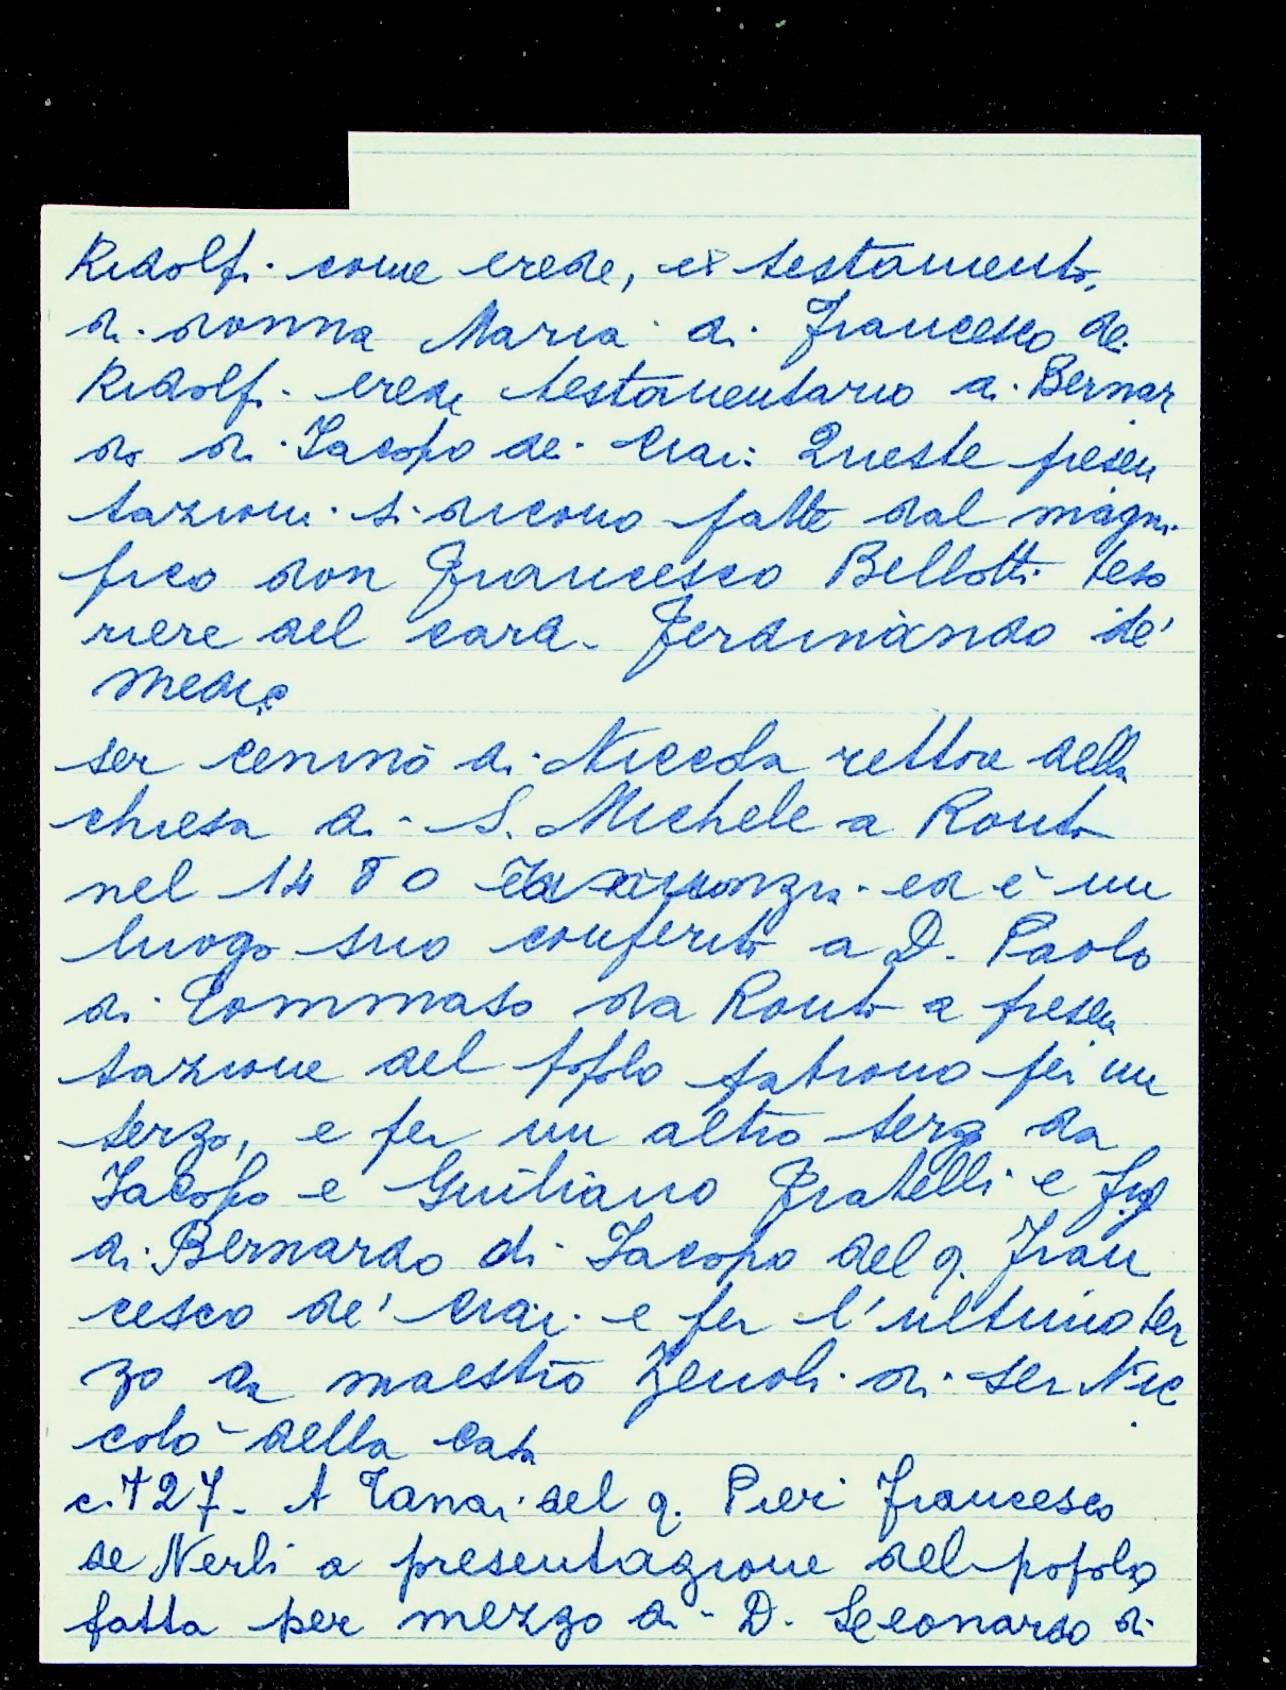 Ridolfi come erede, ex testamento,
di donna Maria di Francesco de
Ridolfi erede testamentario di Bernar
do di Iacopo de' Queste presen
tazioni si dicono fatte dal magni
fico don Francesco Bellotti teso
riere del card. Ferdinando de'
Medic
ser Cennino di Niccola rettore della
chiesa di S. Michele a Ronta
nel 1480 ed è un
luogo suo conferito a D. Paolo
di Tommaso da Ronta a presen
tazione del popolo patrono per un
terzo, e per un altro terzo da
Iacopo e Giuliano fratelli e fig
di Bernardo di Iacopo del q. Fran
cesco de' e per l'ultimo ter
zo da maestro Zenobi di ser Nic
colò della Casa
c. 127. A Tanai del q. Pieri Francesco
de Nerli a presentazione del popolo
fatta per mezzo di D. Leonardo di